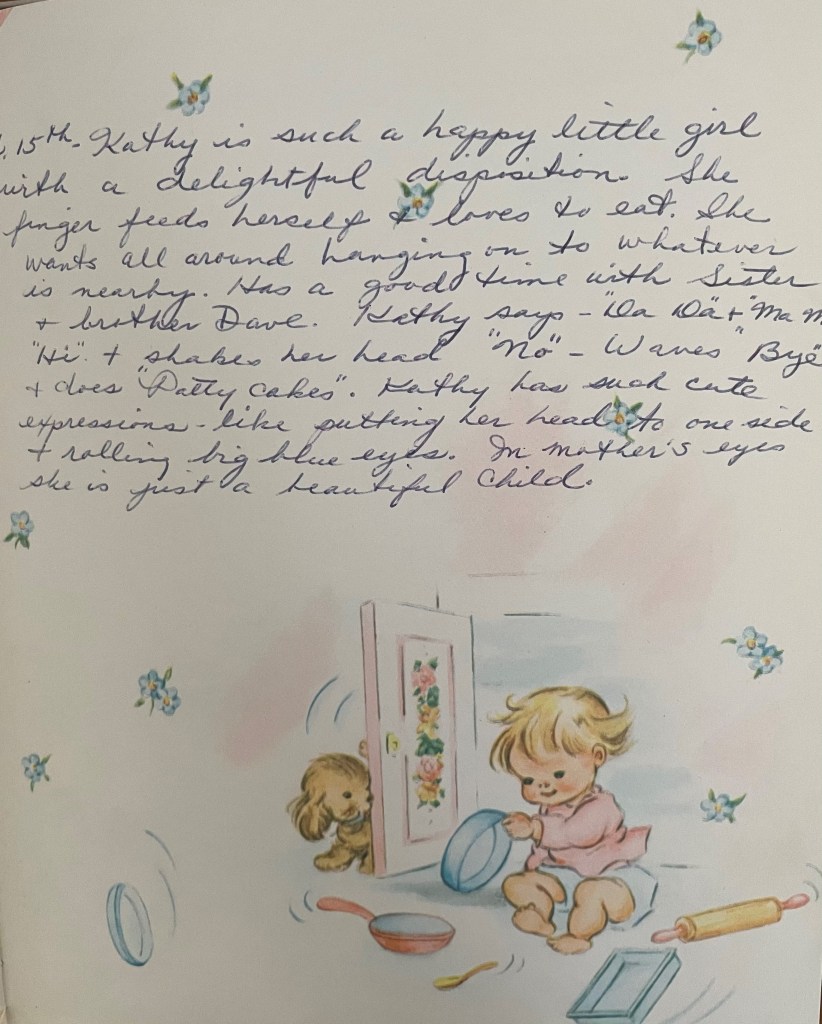 . 15th - Kathy is such a happy little girl
with a delightful disposition. She
finger feeds herself & loves to eat. She
wants all around hanging on to whatever
is nearby. Has a good time with Sister
+ brother Dave. Kathy says - "Da Da" + "Ma M
"Hi". + shakes her head "No" - Waves "Bye"
+ does "Patty cakes". Kathy has such cute
expressions - like putting her head to one side
+ rolling big blue eyes. In mother's eyes
she is just a beautiful child.